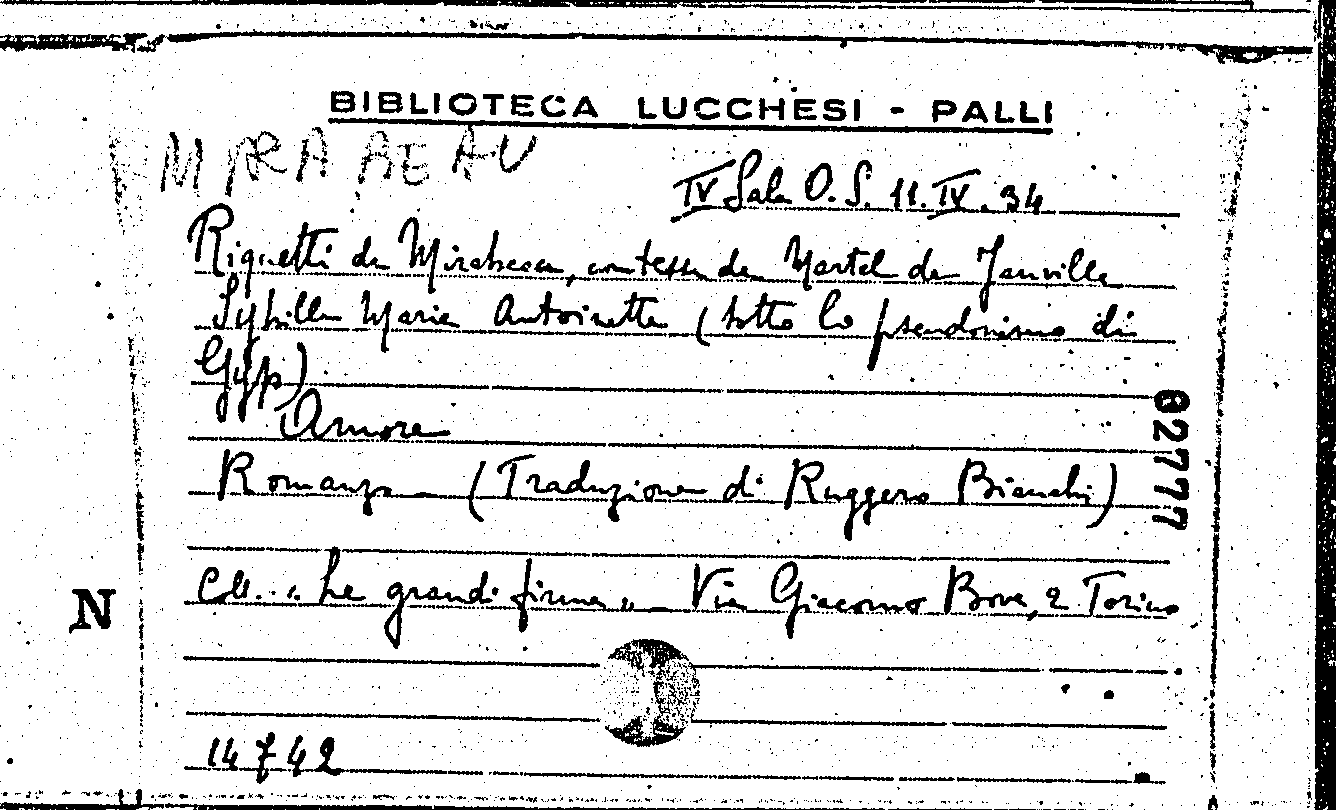 BIBLIOTECA LUCCHESI - PALLI
MIRABEAU
IV Sala O. S. 11. IV. 34
Riquetti de Mirabeau, contessa de Martel de Janville
Sybille Marie Antoinette (sotto lo pseudonimo di
Gyp)
Amore
Romanzo - (Traduzione di Ruggero Bianchi)
02777
Coll. "Le grandi firme" - Via Giacomo Bove, 2 Torino
N
14742